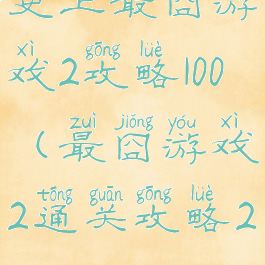 史上最囧游
xì gōng lüè
戏2攻略100
zuì jiǒng yóu xì
(最囧游戏
tōng guān gōng lüè
2通关攻略2